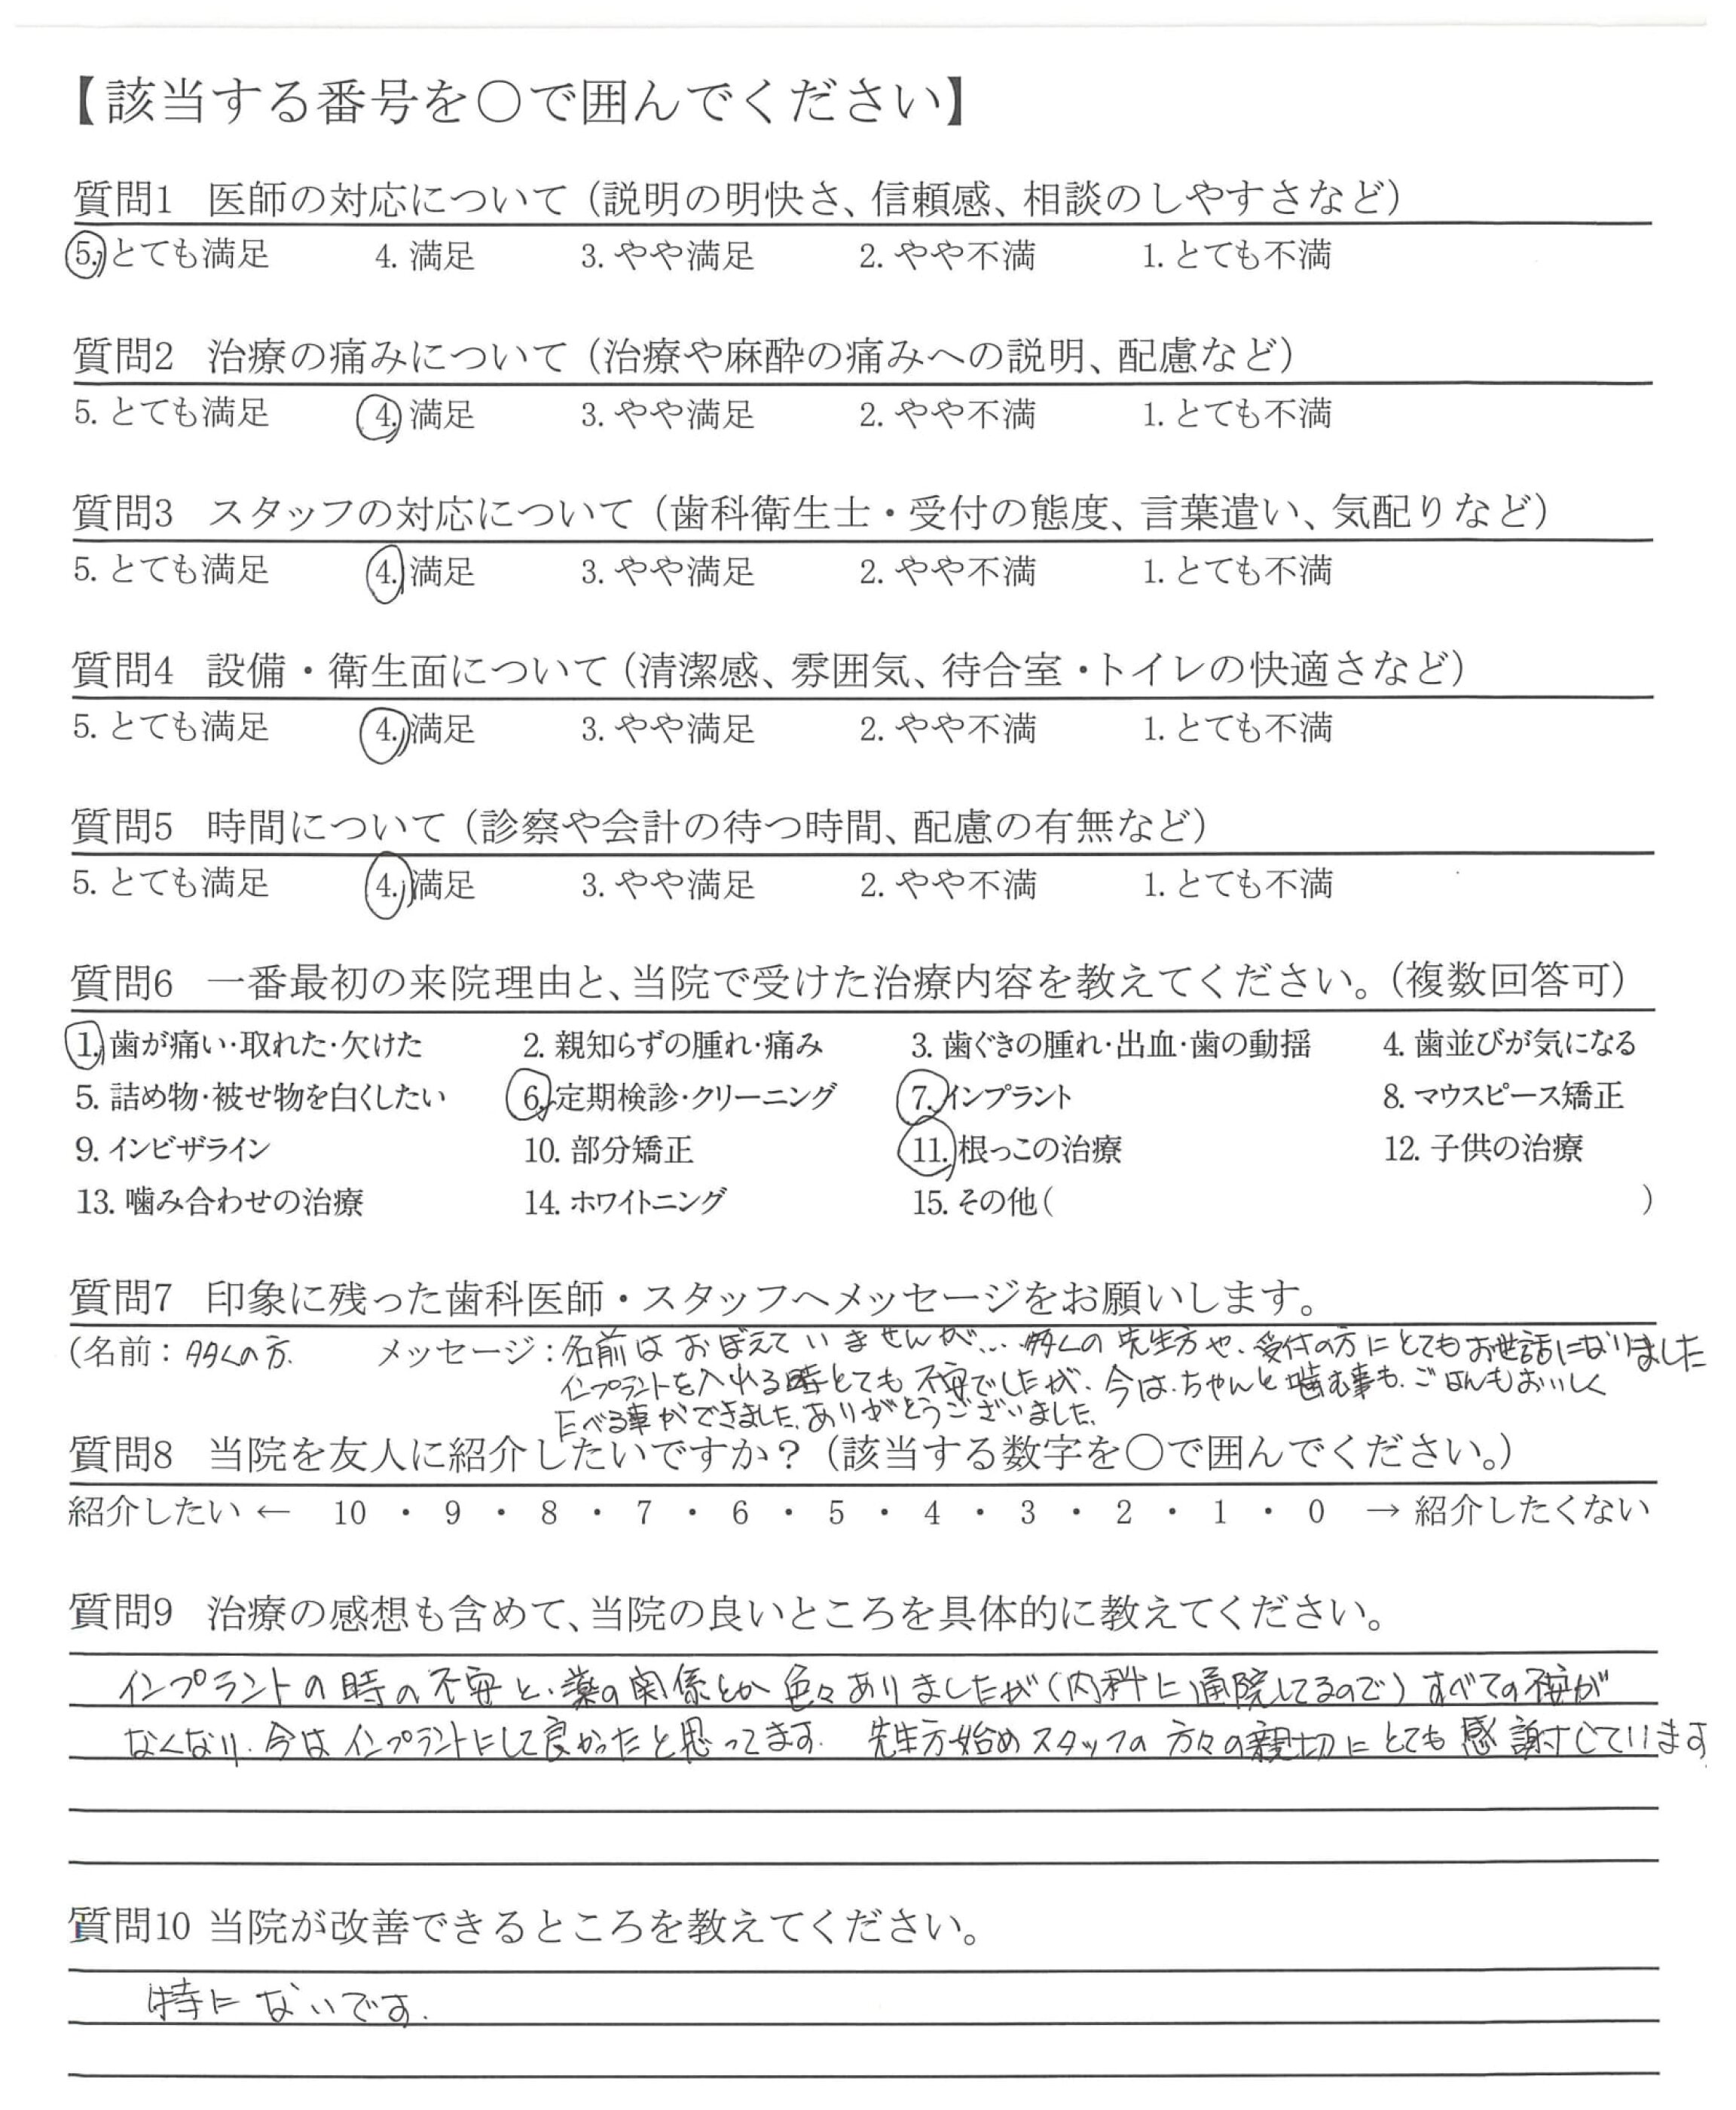 【該当する番号を〇で囲んでください】
質問1 医師の対応について（説明の明快さ、信頼感、相談のしやすさなど）
5. とても満足 4. 満足 3. やや満足 2. やや不満 1. とても不満
質問2 治療の痛みについて（治療や麻酔の痛みへの説明、配慮など）
5. とても満足 4. 満足 3. やや満足 2. やや不満 1. とても不満
質問3 スタッフの対応について（歯科衛生士・受付の態度、言葉遣い、気配りなど）
5. とても満足 4. 満足 3. やや満足 2. やや不満 1. とても不満
質問4 設備・衛生面について（清潔感、雰囲気、待合室・トイレの快適さなど）
5. とても満足 4. 満足 3. やや満足 2. やや不満 1. とても不満
質問5 時間について（診察や会計の待つ時間、配慮の有無など）
5. とても満足 4. 満足 3. やや満足 2. やや不満 1. とても不満
質問6 一番最初の来院理由と、当院で受けた治療内容を教えてください。（複数回答可）
1. 歯が痛い･取れた･欠けた 2. 親知らずの腫れ･痛み 3. 歯ぐきの腫れ･出血･歯の動揺 4. 歯並びが気になる
5. 詰め物･被せ物を白くしたい 6. 定期検診･クリーニング 7. インプラント 8. マウスピース矯正
9. インビザライン 10. 部分矯正 11. 根っこの治療 12. 子供の治療
13. 噛み合わせの治療 14. ホワイトニング 15. その他( )
質問7 印象に残った歯科医師・スタッフへメッセージをお願いします。
(名前：多くの方. メッセージ：名前は おぼえて いませんが… 多くの 先生方や、受付の方に とても お世話になりました
インプラントを入れる時とても 不安でしたが、今は、ちゃんと 噛む事も、ごはんもおいしく
たべる事ができました。ありがとうございました。
質問8 当院を友人に紹介したいですか？（該当する数字を〇で囲んでください。）
紹介したい ← 10 ・ 9 ・ 8 ・ 7 ・ 6 ・ 5 ・ 4 ・ 3 ・ 2 ・ 1 ・ 0 → 紹介したくない
質問9 治療の感想も含めて、当院の良いところを具体的に教えてください。
インプラントの 時の 不安と、薬の関係とか 色々ありましたが（内科に通院してるので）すべての不安が
なくなり、今は インプラントにして良かったと思ってます。 先生方始め スタッフの 方々の親切に とても 感謝しています
質問10 当院が改善できるところを教えてください。
特に ないです.